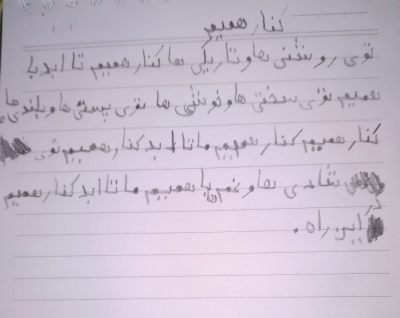 کنار همیم
توی روشنی ها و تاریکی ها کنار همیم تا ابد با
همیم توی سختی ها و خوشی ها توی پستی ها و بلندی ها
کنار همیم کنار همیم ما تا ابد کنار همیم توی
شادی ها و غم ها با همیم ما تا ابد کنار همیم
در این راه .